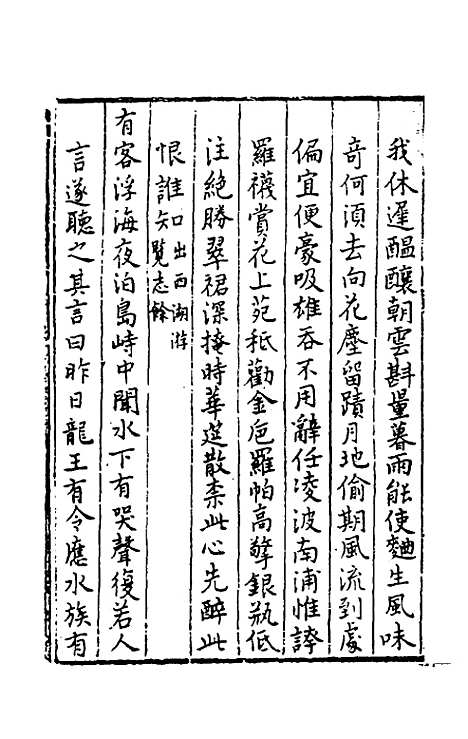 我休遲醖釀朝雲斟量暮雨能使麯生風味
竒何湏去向花塵留蹟月地偷期風流到處
偏宜便豪吸雄吞不用辭任淩波南浦惟誇
羅襪賞花上苑秪勸金巵羅帕高擎銀瓶低
注絶勝翠裙深掩時華筵散柰此心先醉此
恨誰知出西湖游覽志餘
有客浮海夜泊島峙中聞水下有哭聲復若人
言遂聽之其言曰昨日龍王有令應水族有